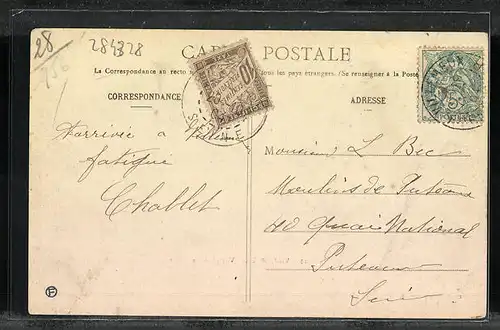 28
284328
CARTE POSTALE
La Correspondance au recto n'est pas les pays étrangers. (Se renseigner à la Poste
CORRESPONDANCE
ADRESSE
J'arrive à
fatigué
Challet
Monsieur L Bec
Moulins de Puteaux
40 Quai National
Puteaux
Seine
10
F